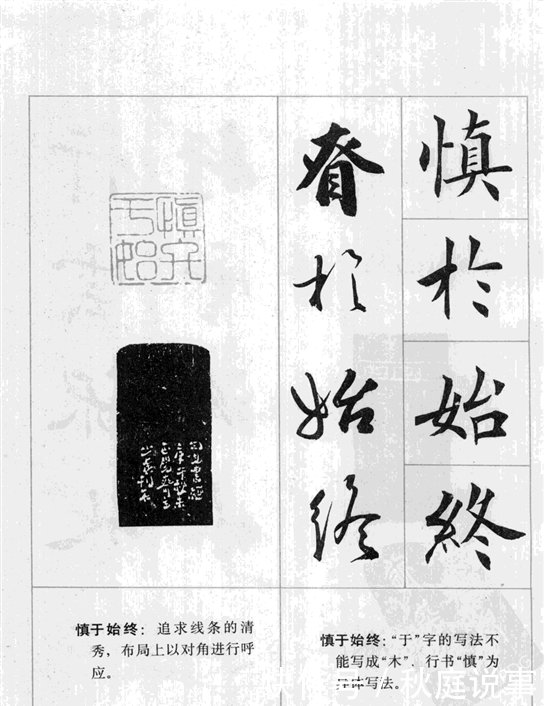 慎於始終
眘於始終
慎于始终：追求线条的清
秀，布局上以对角进行呼
应。
慎于始终：“于”字的写法不
能写成“木”．行书“慎”为
异体写法。
快传号 / 秋庭说事